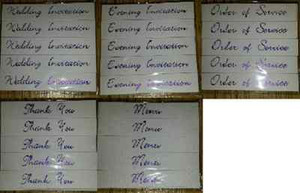 Wedding Invitation
Wedding Invitation
Wedding Invitation
Wedding Invitation
Wedding Invitation
Evening Invitation
Evening Invitation
Evening Invitation
Evening Invitation
Evening Invitation
Order of Service
Order of Service
Order of Service
Order of Service
Order of Service
Thank You
Thank You
Thank You
Thank You
Thank You
Menu
Menu
Menu
Menu
Menu